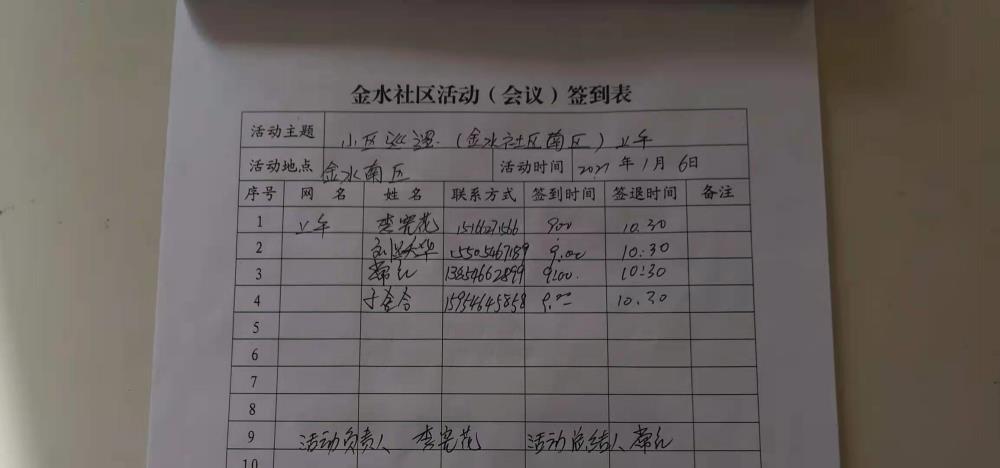 金水社区活动（会议）签到表
活动主题 小区巡逻.（金水社区南区）上午
活动地点 金水南区 活动时间 2021年1月6日
序号 网 名 姓 名 联系方式 签到时间 签退时间 备注
1 上午 李宪花 9:00 10.30
2 15505467189 9:00 10:30
3 常红 13854662899 9:00. 10:30
4 15954645858 9:00 10.30
5
6
7
8
9 活动负责人 李宪花 活动总结人 常红
10